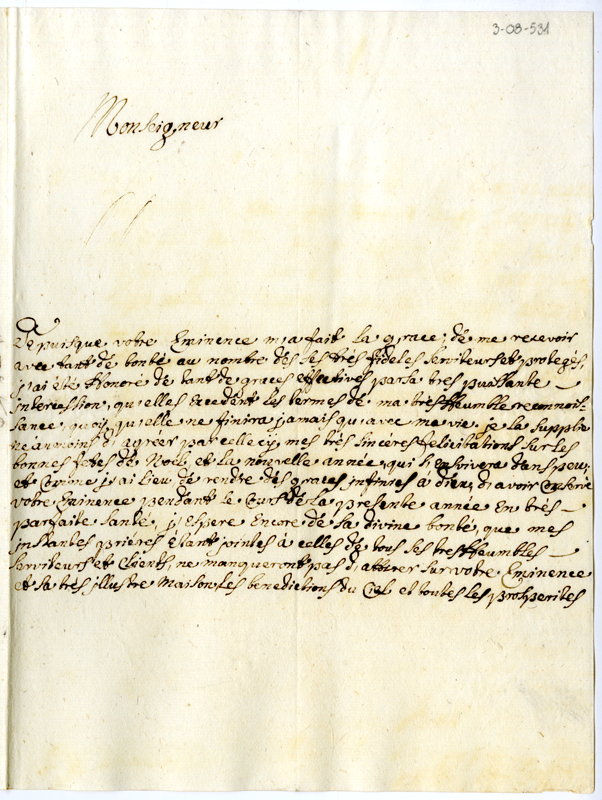 3-08-531
Monseigneur
Depuisque votre Eminence m'a fait la grace, de me recevoir
avec tant de bonté au nombre des ses très fideles serviteurs et protegés,
j'ai été Honoré de tant de graces effectives par sa tres puissante
intercession, qu'elles excedent les termes de ma tres Heumble reconnois-
sance, quoy qu'elle ne finira jamais qu'avec ma vie, je la supplie
néanmoins d'agreer par celle cÿ mes très sincères felicitations sur les
bonnes fetes de Noël et la nouvelle année, qui s'ensuivera dans peu;
et comme j'ai lieu de rendre des graces infinies à dieu, d'avoir conservé
votre Eminence pendant le Cours de la presente année En très
parfaite santé, j'Espere Encore de sa divine bonté, que mes
instantes prières étant jointes à celles de tous ses tres Heumbles
serviteurs et Clients, ne manqueront pas d'attirer sur votre Eminence
et sa très illustre Maison, les benedictions du Ciel et toutes les prosperites